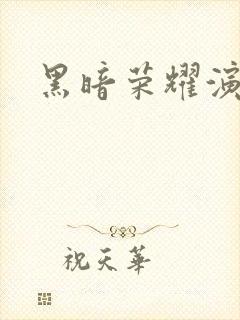 黑暗荣耀演
祝天華